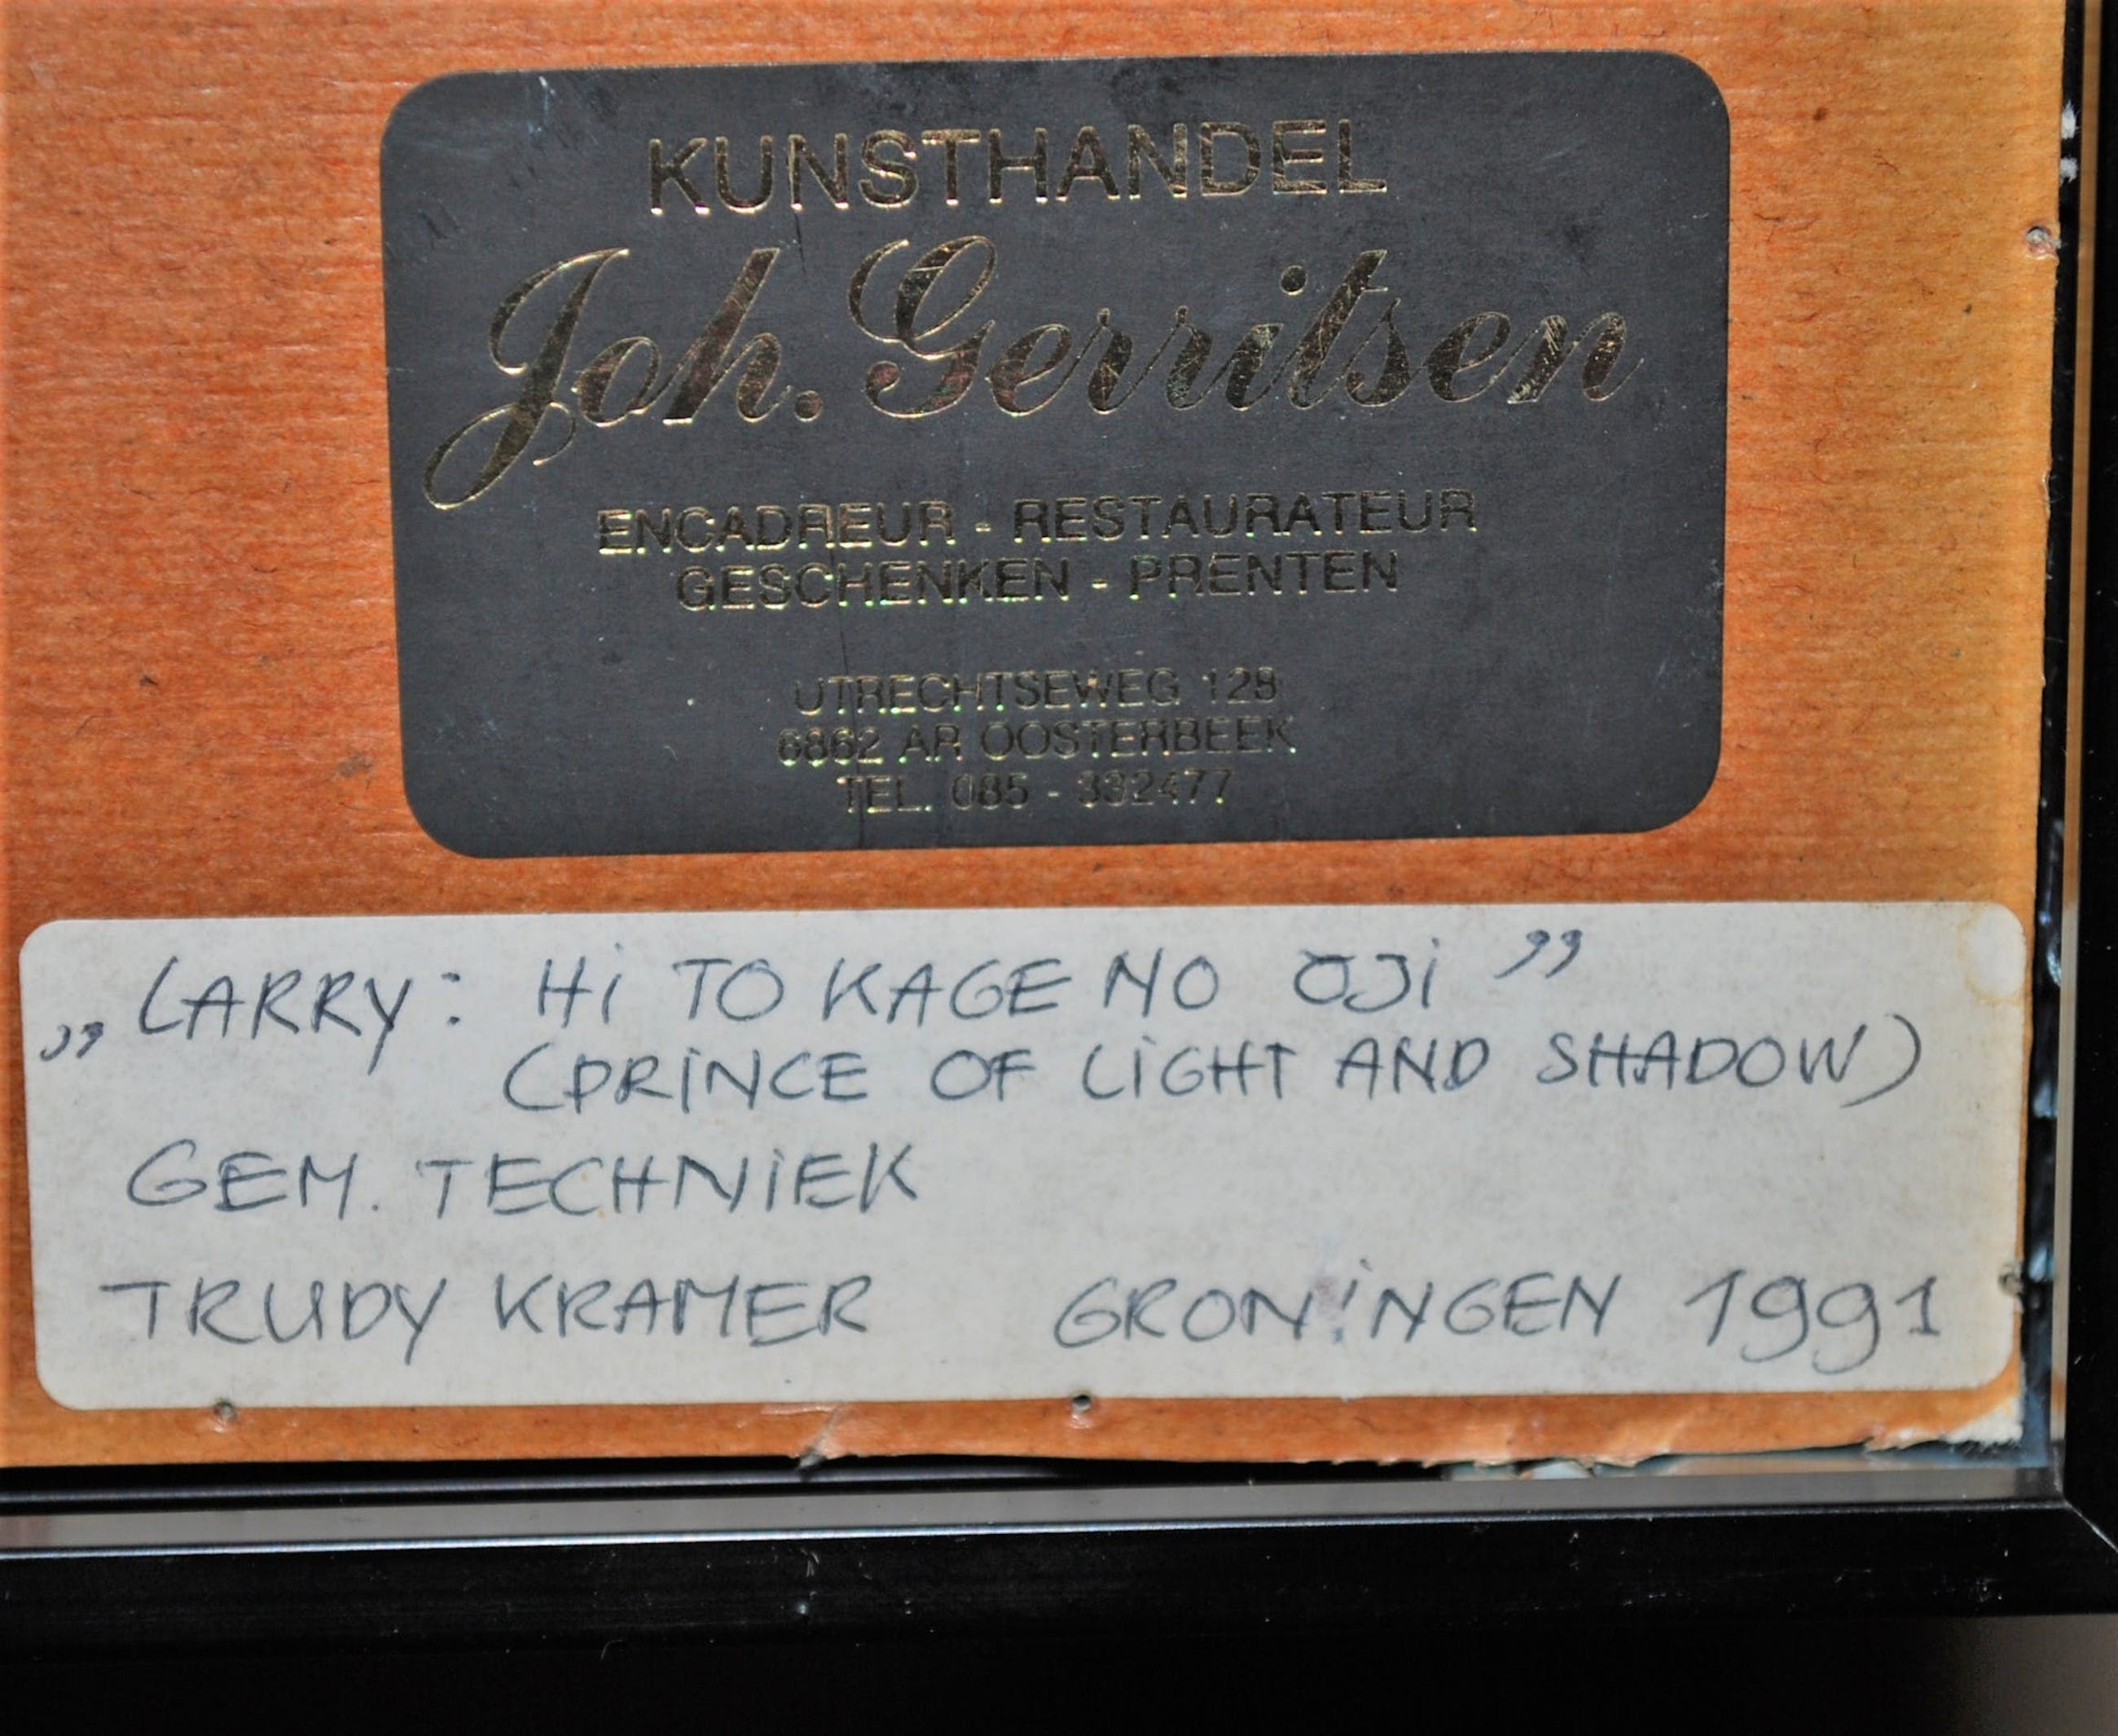 KUNSTHANDEL
Joh. Gerritsen
ENCADREUR - RESTAURATEUR
GESCHENKEN - PRENTEN
UTRECHTSEWEG 129
6862 AR OOSTERBEEK
TEL. 085 - 332477
„LARRY: Hi TO KAGE NO ŌJi”
(PRiNCE OF LiGHT AND SHADOW)
GEM. TECHNiEK
TRUDY KRAMER GRONiNGEN 1991